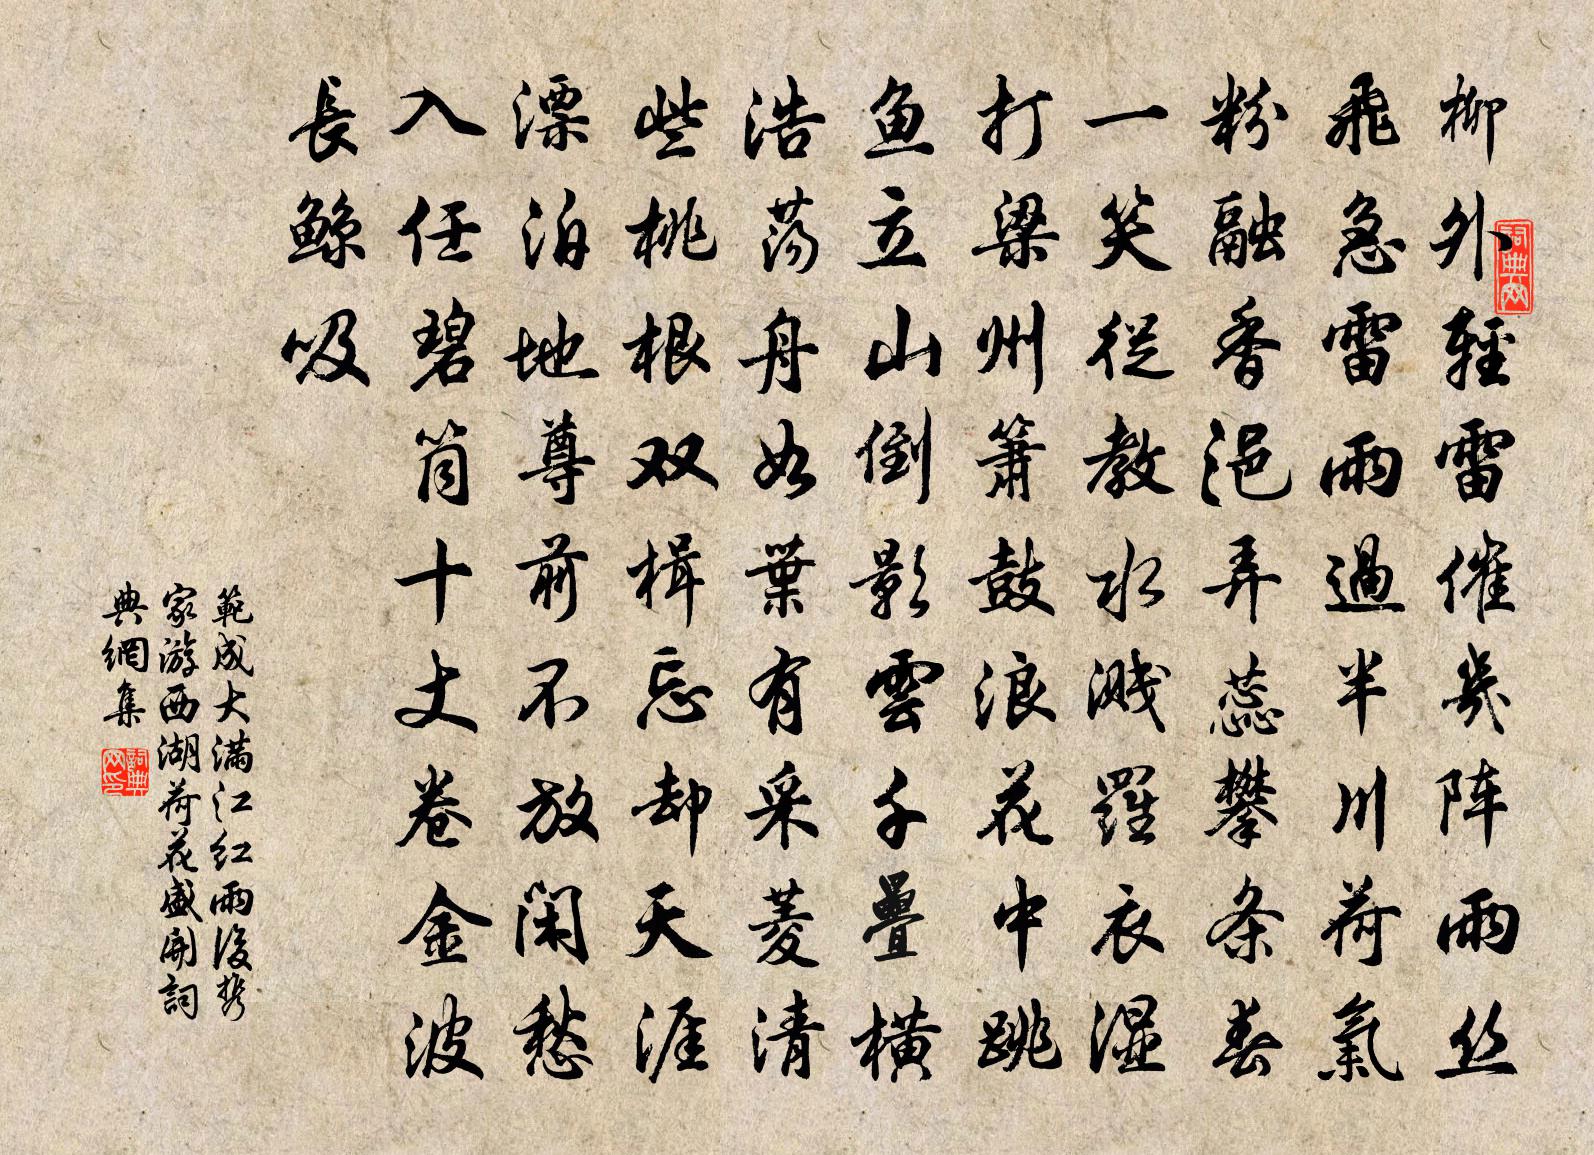 柳外輕雷催幾阵雨丝
飛急雷雨過半川荷氣
粉融香浥弄蕊攀条春
一笑從教水溅羅衣湿
打梁州箫鼓浪花中跳
鱼立山倒影雲千疊横
浩荡舟如葉有采菱清
些桃根双楫忘却天涯
漂泊地尊前不放闲愁
入任碧筒十丈卷金波
長鲸吸
範成大满江红雨後携
家游西湖荷花盛開詞
典網集
詞典网
詞典网印